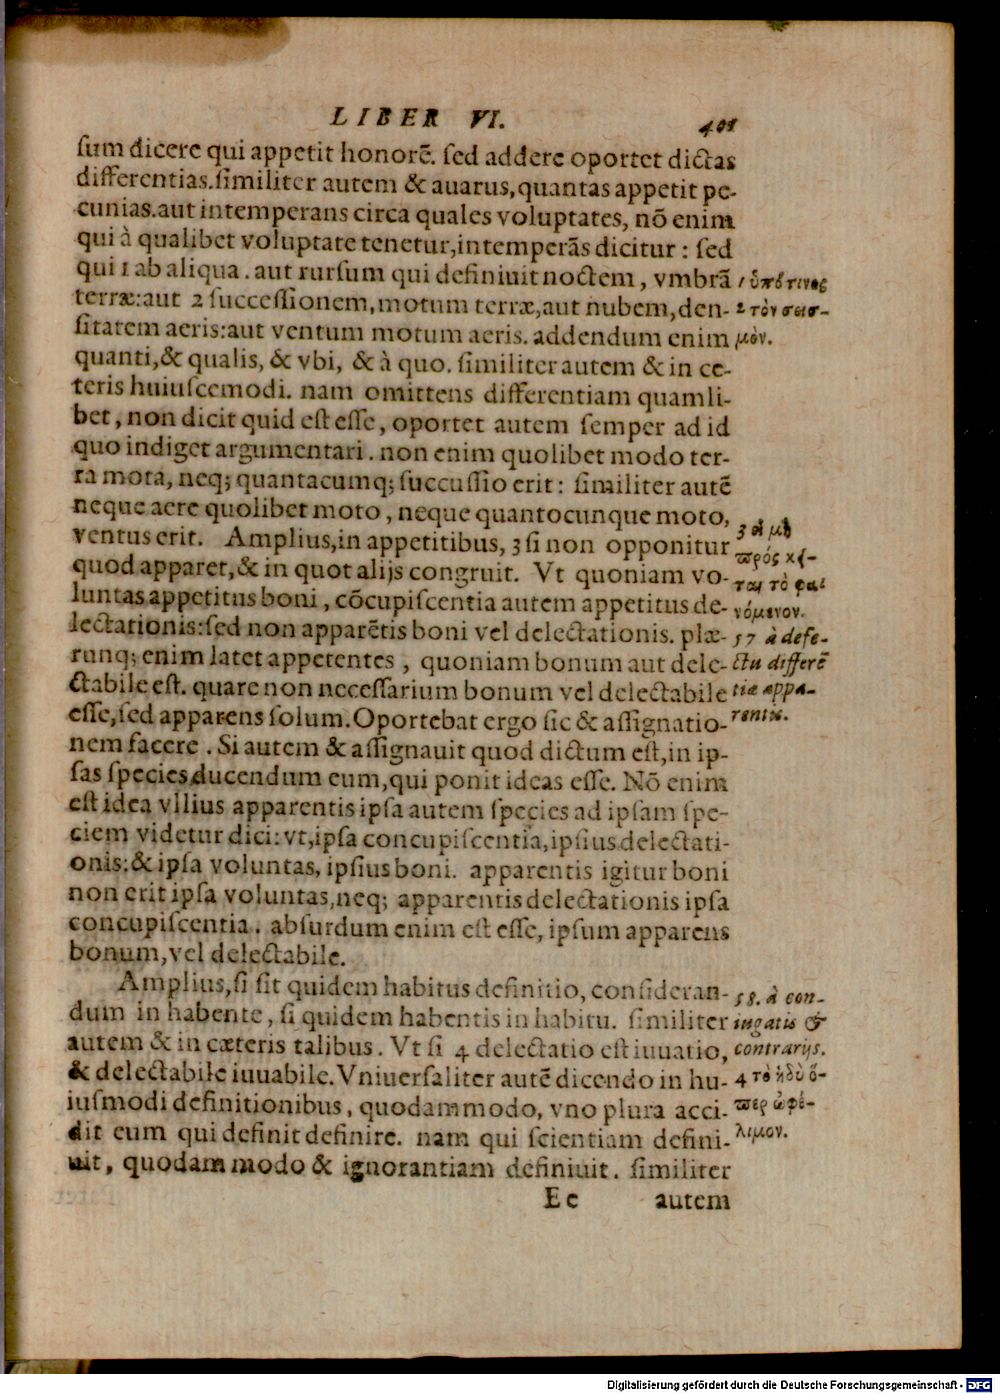 LIBER VI. 401
sum dicere qui appetit honorē. sed addere oportet dictas
differentias.similiter autem & auarus,quantas appetit pe-
cunias.aut intemperans circa quales voluptates, nō enim
qui à qualibet voluptate tenetur,intemperās dicitur : sed
qui 1 ab aliqua . aut rursum qui definiuit noctem , vmbrā
terræ:aut 2 successionem,motum terræ,aut nubem,den-
sitatem aeris:aut ventum motum aeris. addendum enim
quanti,& qualis, & vbi, & à quo. similiter autem & in ce-
teris huiuscemodi. nam omittens differentiam quamli-
bet , non dicit quid est esse , oportet autem semper ad id
quo indiget argumentari . non enim quolibet modo ter-
ra mota, neq; quantacumq; succussio erit : similiter autē
neque aere quolibet moto , neque quantocunque moto,
ventus erit. Amplius,in appetitibus, 3 si non opponitur
quod apparet,& in quot alijs congruit. Vt quoniam vo-
luntas appetitus boni , cōcupiscentia autem appetitus de-
lectationis:sed non apparētis boni vel delectationis. plæ-
runq; enim latet appetentes , quoniam bonum aut dele-
ctabile est. quare non necessarium bonum vel delectabile
esse,sed apparens solum.Oportebat ergo sic & assignatio-
nem facere . Si autem & assignauit quod dictum est,in ip-
sas species ducendum eum,qui ponit ideas esse. Nō enim
est idea vllius apparentis ipsa autem species ad ipsam spe-
ciem videtur dici: vt,ipsa concupiscentia,ipsius delectati-
onis:& ipsa voluntas, ipsius boni. apparentis igitur boni
non erit ipsa voluntas,neq; apparentis delectationis ipsa
concupiscentia . absurdum enim est esse, ipsum apparens
bonum,vel delectabile.
Amplius,si sit quidem habitus definitio, consideran-
dum in habente , si quidem habentis in habitu. similiter
autem & in cæteris talibus . Vt si 4 delectatio est iuuatio,
& delectabile iuuabile.Vniuersaliter autē dicendo in hu-
iusmodi definitionibus , quodammodo, vno plura acci-
dit eum qui definit definire. nam qui scientiam defini-
uit, quodam modo & ignorantiam definiuit . similiter
Ee autem
1 ὑπό τινος
2 τὸν σεισ-
μὸν.
3 εἰ μὴ
πρός κει-
ται τὸ φαι
νόμενον.
57 à defe-
ctu differē
tiæ appa-
rentis.
58. à con-
iugatis &
contrarijs.
4 τὸ ἡδὺ ὅ-
περ ὠφέ-
λιμον.
Digitalisierung gefördert durch die Deutsche Forschungsgemeinschaft - DFG